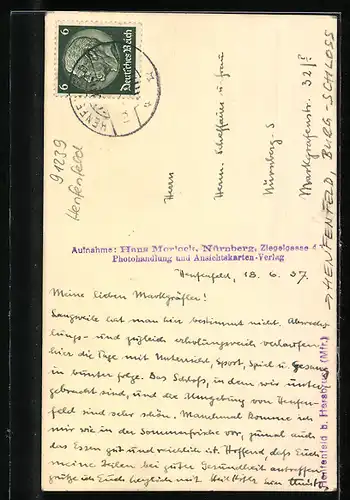 6 Deutsches Reich 6
HENFE
91239
Henfenfeld
Herrn
Herm. Schaffauer u. Frau
Nürnberg S
Markgrafenstr. 32/I
→ HENFENFELD, BURG-SCHLOSS
Aufnahme: Hans Morlock, Nürnberg, Ziegelgasse
Photohandlung und Ansichtskarten-Verlag
Henfenfeld b. Hersbruck (Mfr.)
Henfenfeld, 18. 6. 37.
Meine lieben Markgräfler!
Langweile hat man hier bestimmt nicht. Abwechs-
lungs- und zugleich erholungsreich verlaufen
hier die Tage mit Unterricht, Sport, Spiel u. Gesang
in bunter Folge. Das Schloß, in dem wir unter-
gebracht sind, und die Umgebung von Henfen-
feld sind sehr schön. Manchmal komme ich
mir wie in der Sommerfrische vor, zumal auch
das Essen gut und reichlich ist. Hoffend, daß Euch
meine Zeilen bei guter Gesundheit antreffen,
grüße ich Euch herzlich mit Heil Hitler